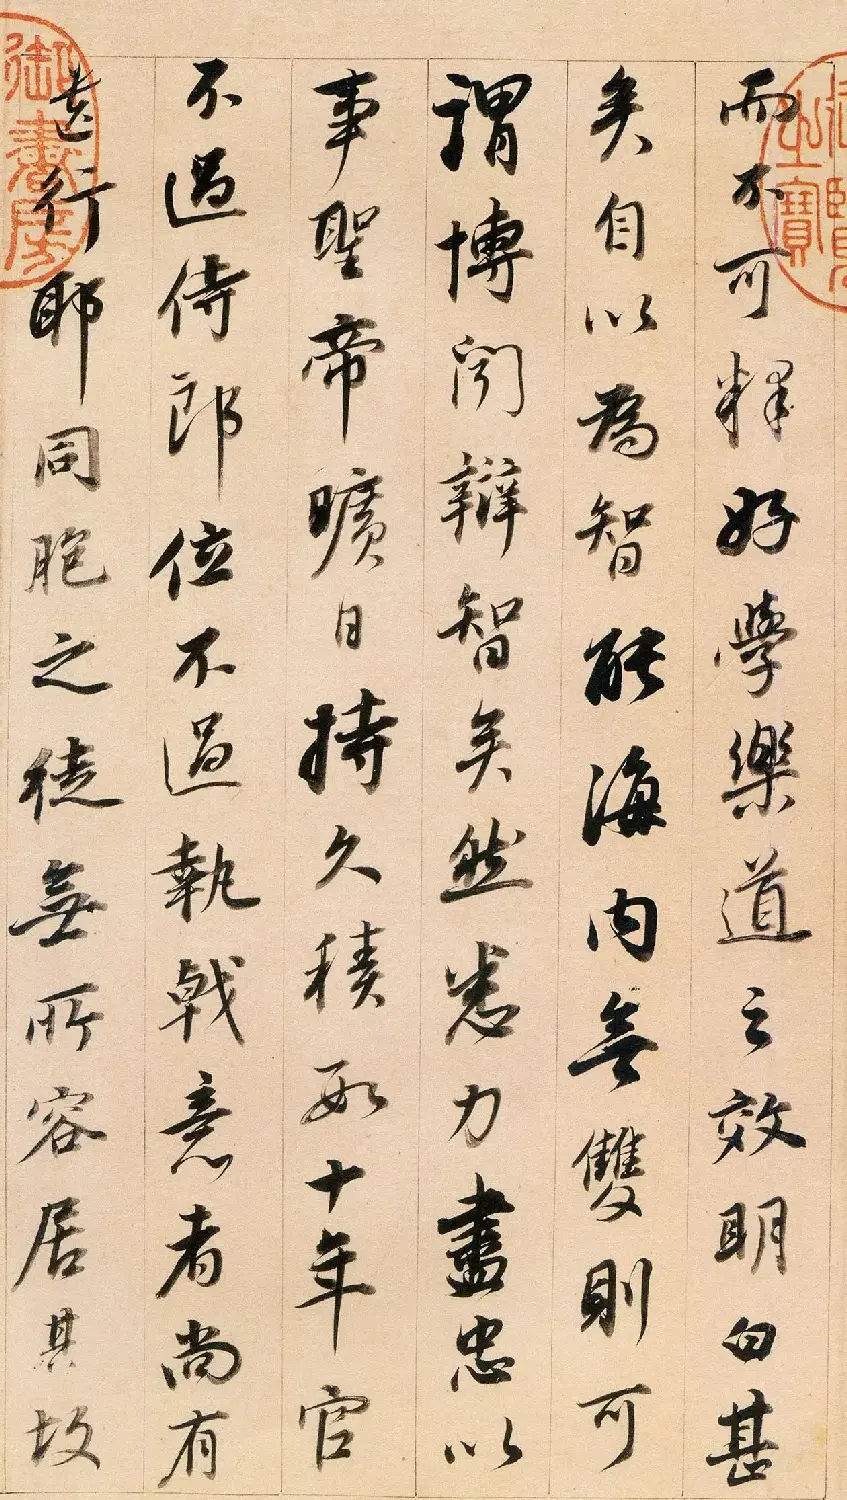 而不可釋好學樂道之效明白甚
矣自以為智能海內無雙則可
謂博聞辯智矣然悉力盡忠以
事聖帝曠日持久積數十年官
不過侍郎位不過執戟意者尚有
遺行耶同胞之徒無所容居其故
御書房
之寶